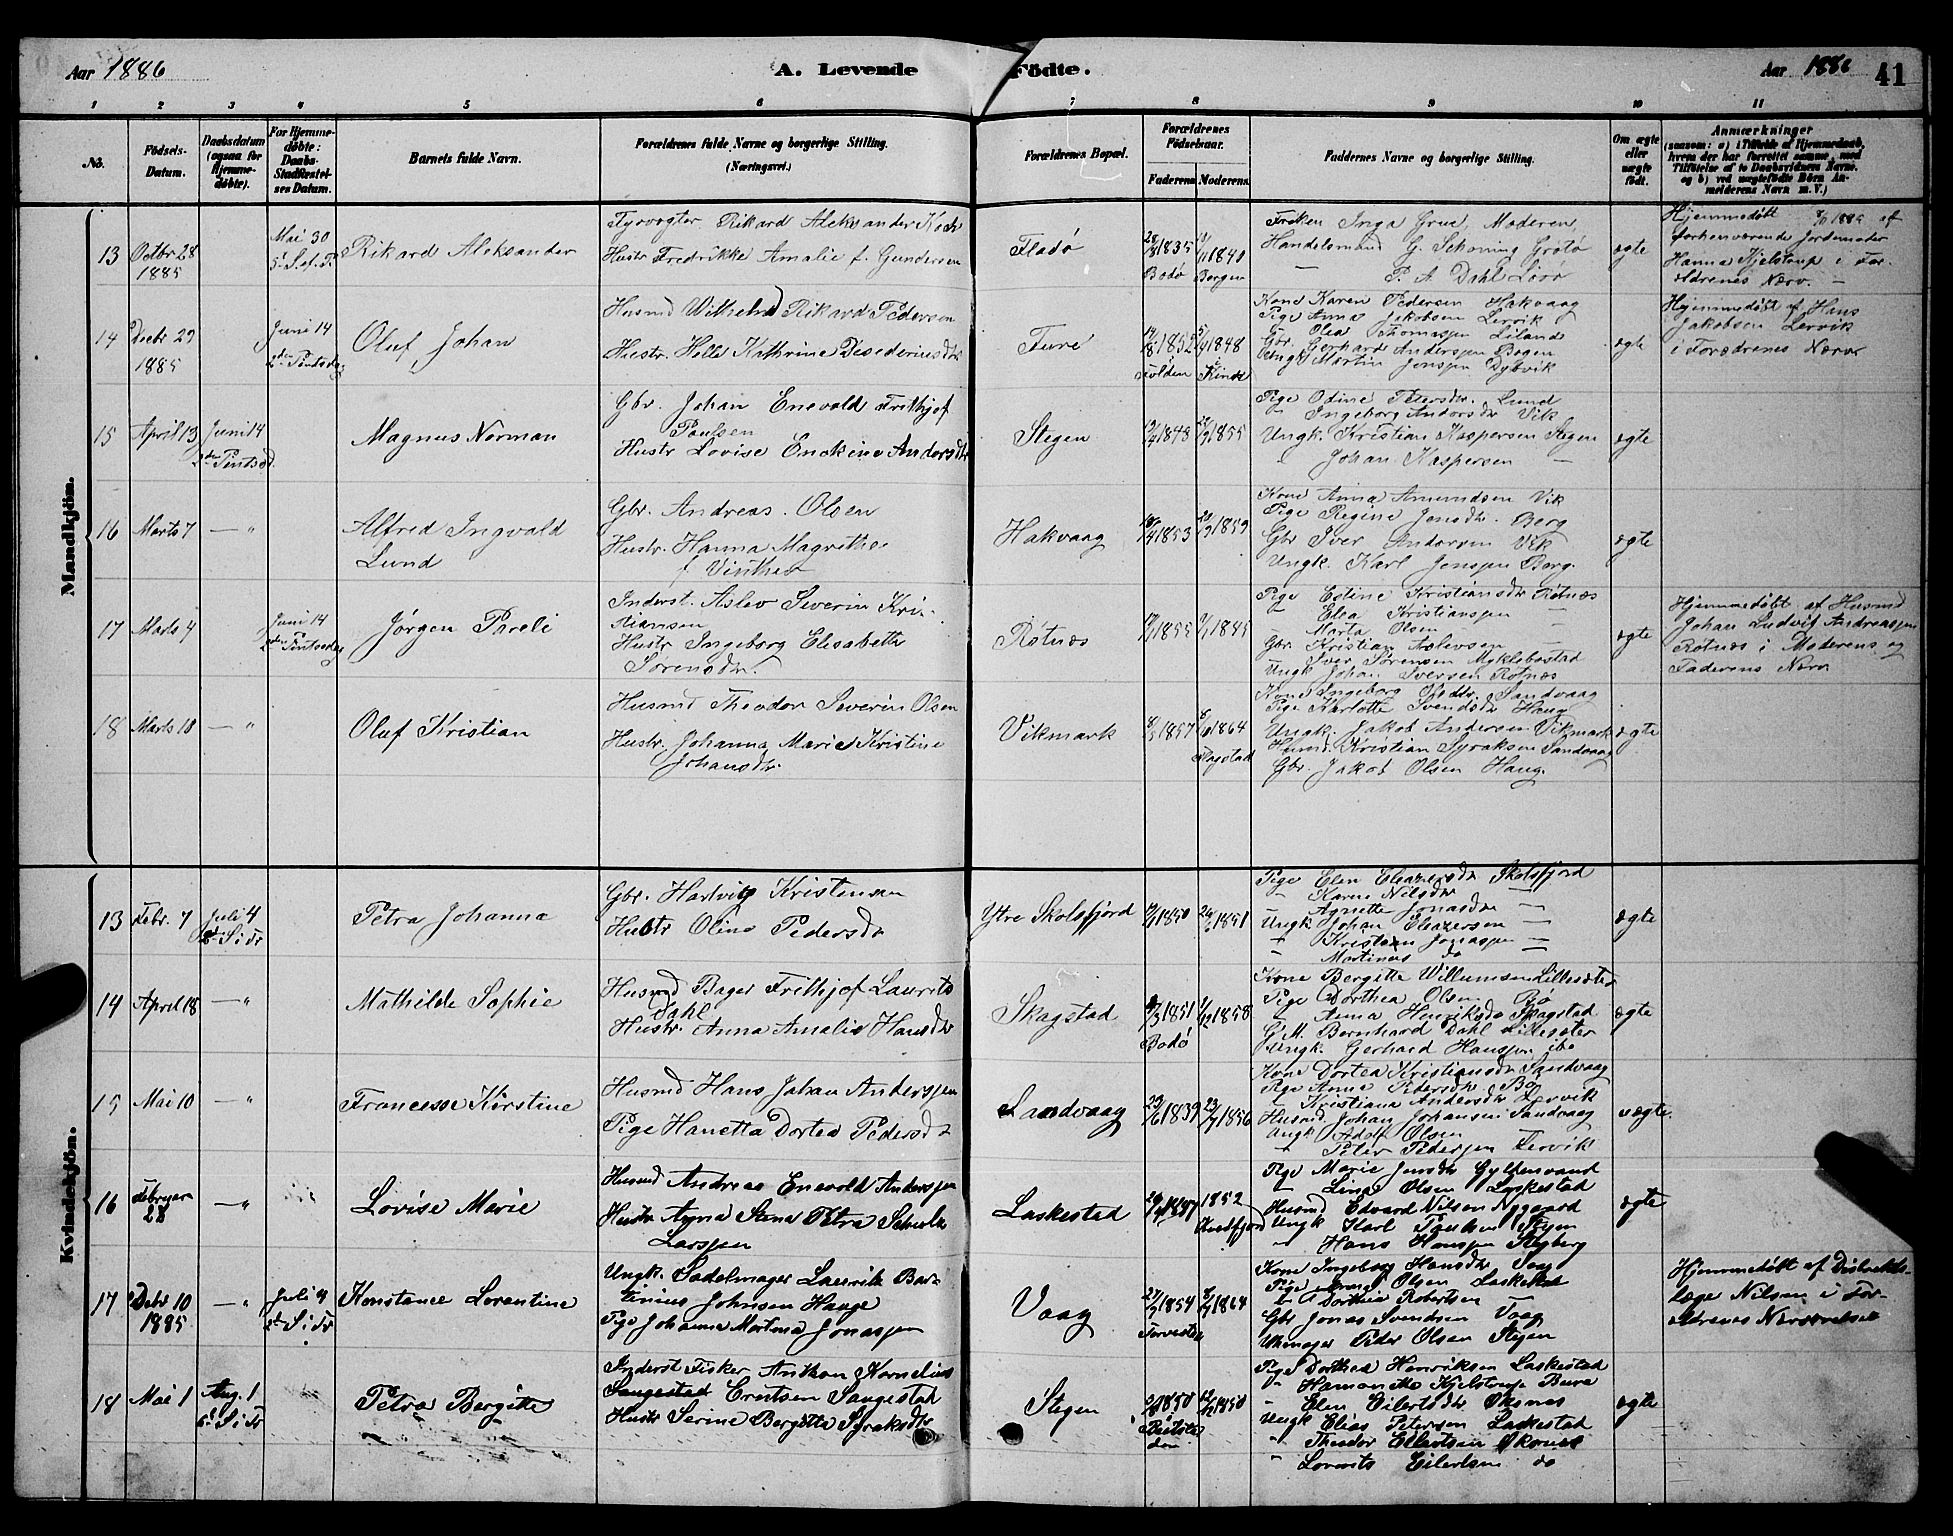 Aar 1886
A. Levende Födte.
Aar 1886
41
1 2 3 4 5 6 7 8 9 10 11
No.
Födsels-Datum.
Daabsdatum (ogsaa for Hjemme-döbte).
For Hjemme-döbte: Daabs-Stadfæstel-ses Datum.
Barnets fulde Navn.
Forældrenes fulde Navne og borgerlige Stilling. (Næringsvei.)
Forældrenes Bopæl.
Forældrenes Födselsaar.
Faderens. Moderens.
Faddernes Navne og borgerlige Stilling.
Om ægte eller uægte födt.
Anmærkninger
(saasom: a) i Tilfælde af Hjemmedaab,
hvem der har forrettet samme, med
Tilföielse af to Daabsvidners Navne,
og b) ved uægtefödte Börn An-
melderens Navn m. V.)
Mandkjön.
13
Octbr 28
1885
Mai 30
Rikard Aleksander
Rikard Aleksander Koch
Hustr Fredrikke Amalie f. Gundersen
Fladö
1835
Bodö
1840
Bergen
Fröken Inga Grue, Moderen,
Handelsmand G. Schöning Grötö
P. A. Dahl Löv
ægte
Hjemmedöbt af
forhenværende Jordemoder
Hanna Kjelstrup i For-
ældrenes Nærv.
14
Decbr 29
1885
Juni 14
2den Pintsedag
Oluf Johan
Husmd Wilhelm Rikard Pedersen
Hustr. Helle Kathrine
Fure
1852
Folden
1848
Kone Karen Pedersen Hakvaag
Pige Anna Jakobsen Lervik
Gbr. Olea Thomassen Liland
Gerhard Anderssen Bogen
Ungk Martin Jenssen Dybvik
ægte
Hjemmedöbt af Hans
Jakobsen Lervik
i Forældrenes Nærv
15
April 13
Juni 14
2den Pintsed.
Magnus Norman
Gbr. Johan Enevold Frithjof
Paulsen
Hustr Lovise Andersdtr
Stegen
1848
1855
Pige Odine Petersdtr. Lund
Ingeborg Andersdtr Vik
Ungk. Kristian Kaspersen Stegen
Johan Kaspersen —
ægte
16
Marts 7
— "
Alfred Ingvald
Lund
Gbr. Andreas Olsen
Hustr. Hanna Magrethe
f. Vinther
Hakvaag
1853
1859
Kone Anna Amundsen Vik
Pige Regine Jensdtr. Berg
Gbr Iver Andersen Vik
Ungk. Karl Jenssen Berg.
ægte
17
Marts 4
Juni 14
2den Pintsedag
Jörgen Pareli
Inderst. Aslev Severin Kris-
tiansen
Hustr Ingeborg Elisabeth
Sörensdtr.
Rötnæs
1855
1845
Pige Estine Kristiansdtr Rötnæs
Elea Kristianssen —
Marta Olsen —
Gbr. Kristian Aslevsen
Iver Sörensen Myklebostad
Ungk Johan Iversen Rötnæs
ægte
Hjemmedöbt af Husmd
Johan Ludvig Andreassen
Rötnæs i Moderens og
Faderens Nærv
18
Marts 10
— "
Oluf Kristian
Husmd Theodor Severin Olsen
Hustr. Johanna Marie Kristine
Johansdtr.
Vikmark
1857
1864
Skagstad
Kone Ingeborg Sandvaag
Pige Karlotte Svendsdtr Haug
Ungk. Jakob Andersen Vikmark
Husmd. Kristian Syraksen Sandvaag
Gbr. Jakob Olsen Haug.
ægte
Kvindekjön.
13
Febr. 7
Juli 4
Petra Johanna
Gbr. Hartvig Kristensen
Hustr Oline Pedersdtr
Ytre Skolsfjord
1850
1851
Pige Elen Eleazersdtr Skolsfjord
" Karen Nilsdtr —
" Agnette Jonasdtr —
Ungk Johan Eleazersen —
" Kristian Jonassen —
" Martines do
ægte
14
April 18
— "
Mathilde Sophie
Husmd Bager Frithjof Laurits
Dahl
Hustr. Anna Amalie Hansdtr
Skagstad
1851
Bodö
1858
Kone Bergitte Willumsen Lillesæter
Pige Dorthea Olsen Bö
" Anna Henriksdtr Skagstad
G. M. Bernhard Dahl Lillesæter
Ungk. Gerhard Hanssen ibd
ægte
15
Mai 10
— "
Francesse Kirstine
Husmd Hans Johan Anderssen
Pige Hanetta Dortea Pedersdtr
Sandvaag
1839
1856
Kone Dortea Kristiansdtr Sandvaag
Pige Anna Pedersdtr Bö
" Kristiana Andersdtr Lervik
Husmd. Johan Johansen Sandvaag
Ungk Adolf Olsen —
" Peter Pedersen Lervik
uægte.
16
Februar
28
— "
Lovise Marie
Husmd Andreas Enevold Anderssen
Hustr Anna Stina Petra
Larssen
Laskestad
1847
1852
Pige Marie Jensdtr Gyltenvand
" Lina Olsen Laskestad
Husmd Edvard Nilsen Nygaard
Ungk Karl Paulsen Stegen
" Hans Hanssen Stegberg
ægte
17
Decbr 10
1885
— "
Juli 4
Konstance Lorentine
Ungk. Sadelmager Laurits Bar-
tinius Johnsen Hauge
Pige Johanna Martina Jonassen
Vaag
1854
1864
Kone Ingeborg Hansdtr Vaag
Pige Olsen Laskestad
" Dorthea Robertsen —
Gbr Jonas Svendsen Vaag
Uhrmager Peder Olsen Stegen
Hjemmedöbt af Distrikts-
læge Nilsen i For-
ældrenes Nærværelse
18
Mai 1
Aug. 1
Petra Bergitte
Inderst Fisker Anthon Kornelius
Sangestad Erntsen Sangestad
Hustr Serine Bergitte Syraksdtr
Stegen
1850
1850
Pige Dorthea Henriksen Laskestad
" Kjelstrup
" Elen Eilertsdtr Öksnes
Ungk Elias Petersen Laskestad
" Theodor Eilertsen Öksnes
" Lorents Eilertsen do
ægte